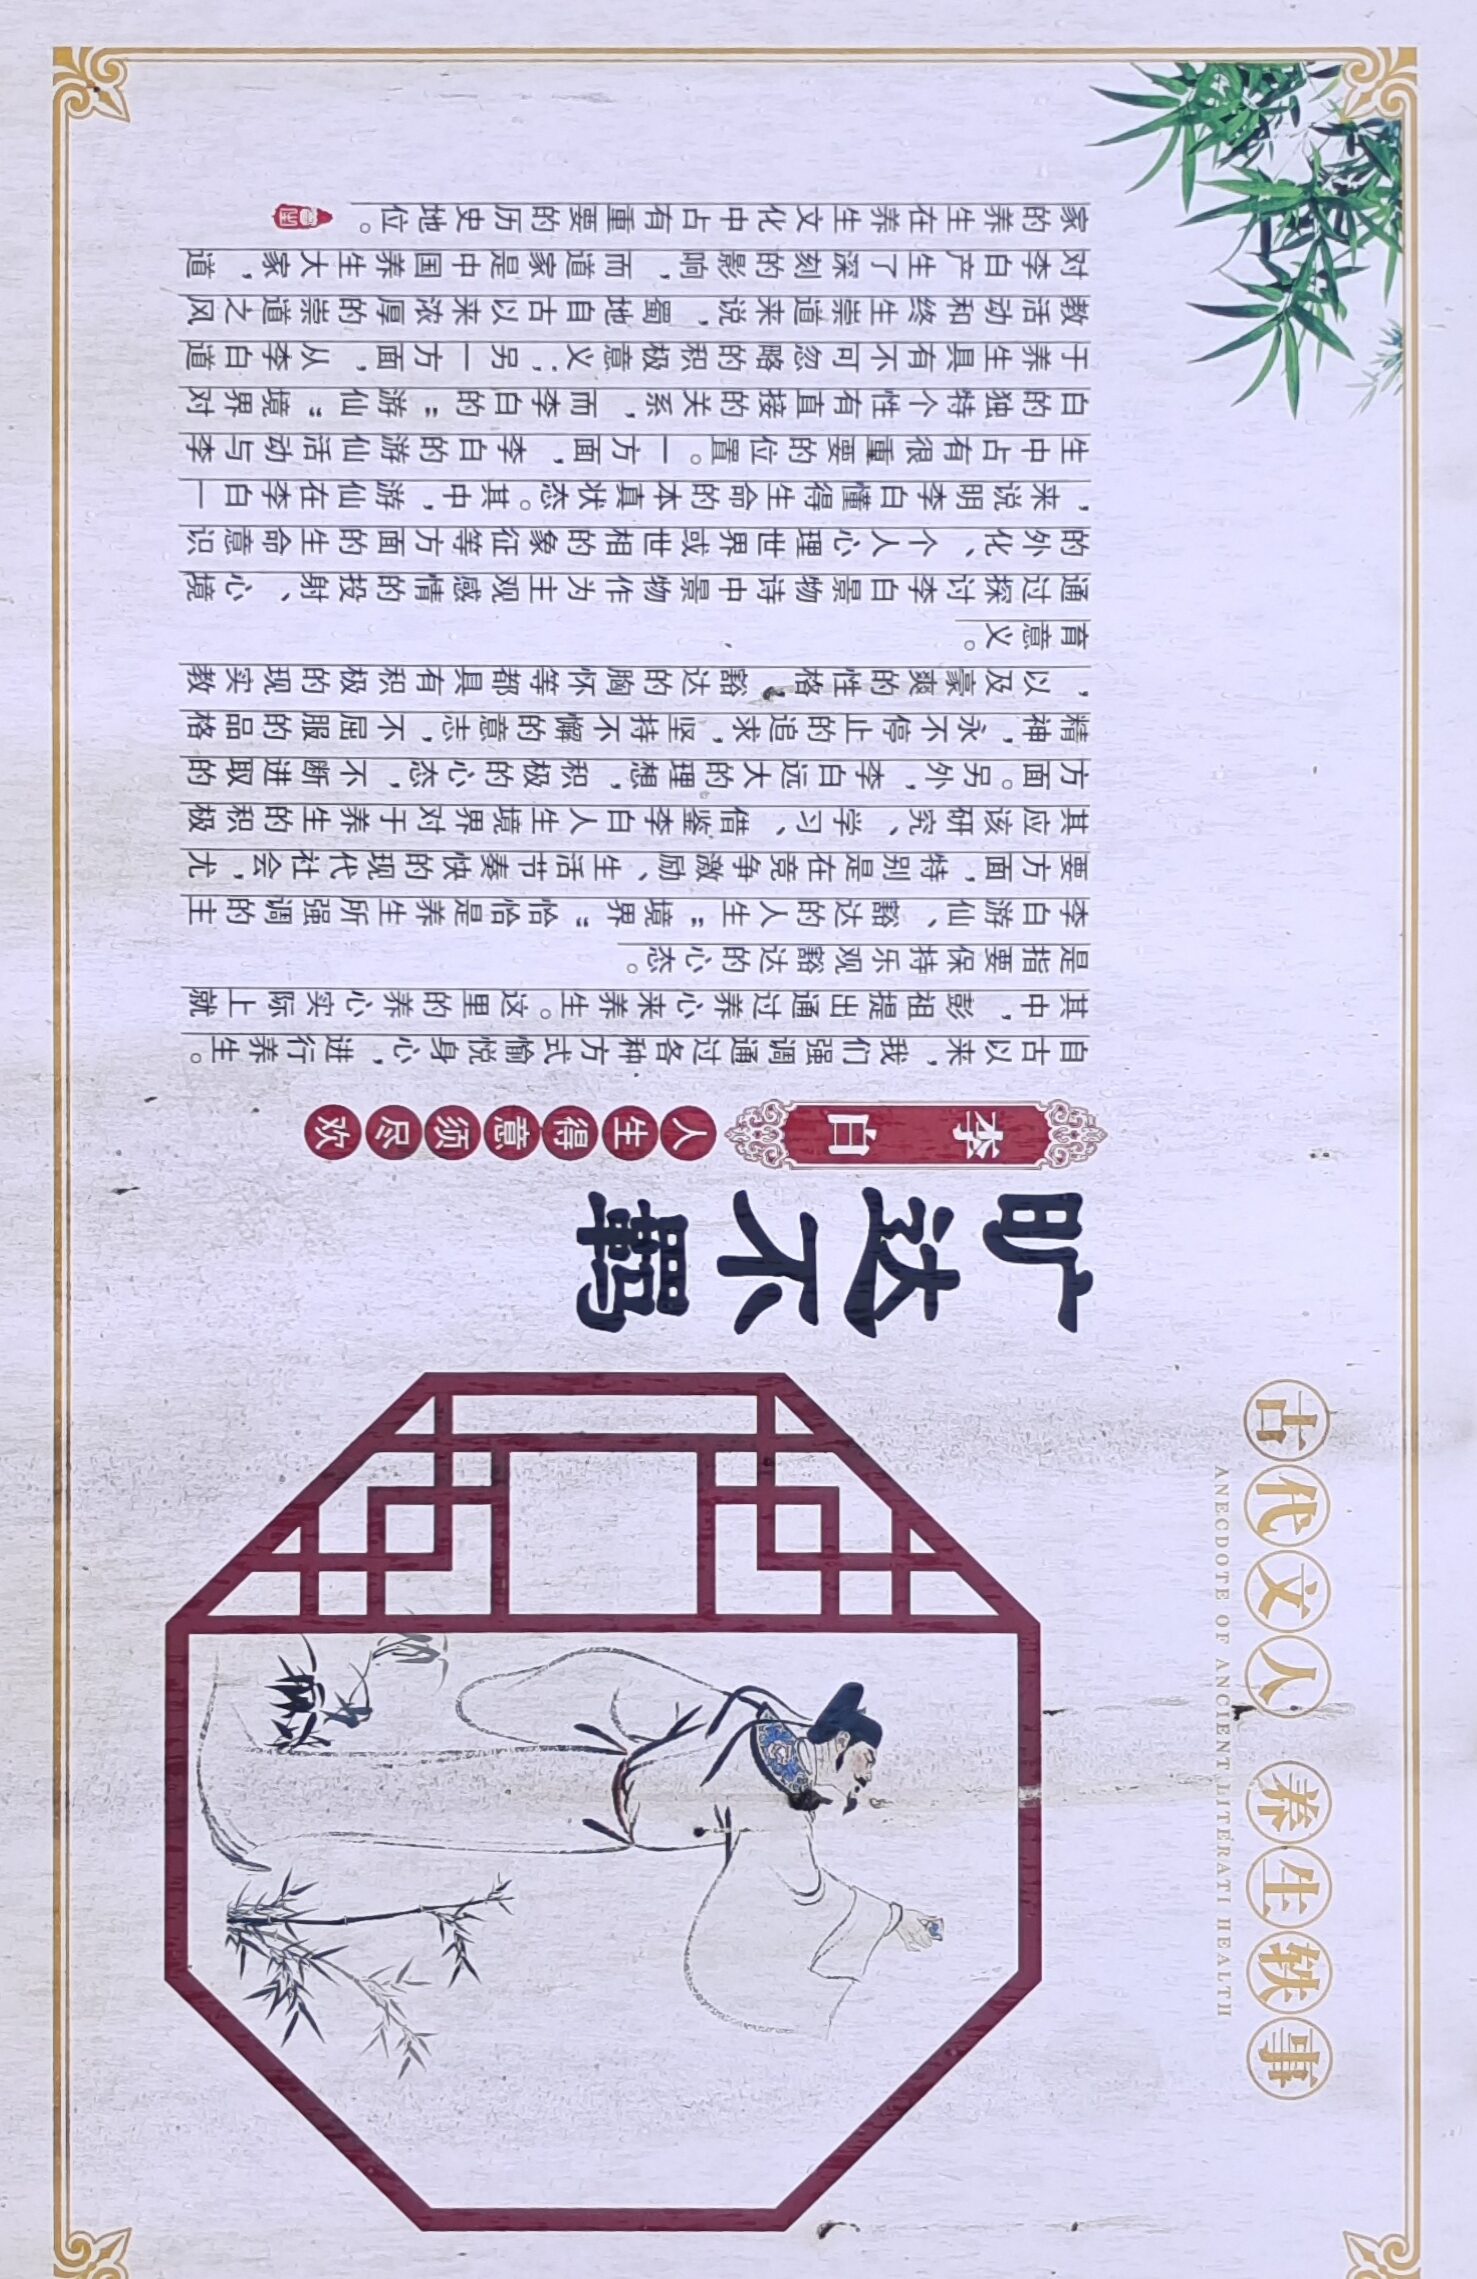 古代文人 养生轶事
ANECDOTE OF ANCIENT LITERATI HEALTH
旷达不羁
李白
人生得意须尽欢
自古以来，我们强调通过各种方式愉悦身心，进行养生。
其中，彭祖提出通过养心来养生。这里的养心实际上就
是指要保持乐观豁达的心态。
李白游仙、豁达的人生“境界”恰恰是养生所强调的主
要方面，特别是在竞争激励、生活节奏快的现代社会，尤
其应该研究、学习、借鉴李白人生境界对于养生的积极
方面。另外，李白远大的理想，积极的心态，不断进取的
精神，永不停止的追求，坚持不懈的意志，不屈服的品格
，以及豪爽的性格，豁达的胸怀等都具有积极的现实教
育意义。
通过探讨李白景物诗中景物作为主观感情的投射、心境
的外化、个人心理世界或世相的象征等方面的生命意识
，来说明李白懂得生命的本真状态。其中，游仙在李白一
生中占有很重要的位置。一方面，李白的游仙活动与李
白的独特个性有直接的关系，而李白的“游仙”境界对
于养生具有不可忽略的积极意义；另一方面，从李白道
教活动和终生崇道来说，蜀地自古以来浓厚的崇道之风
对李白产生了深刻的影响，而道家是中国养生大家，道
家的养生在养生文化中占有重要的历史地位。